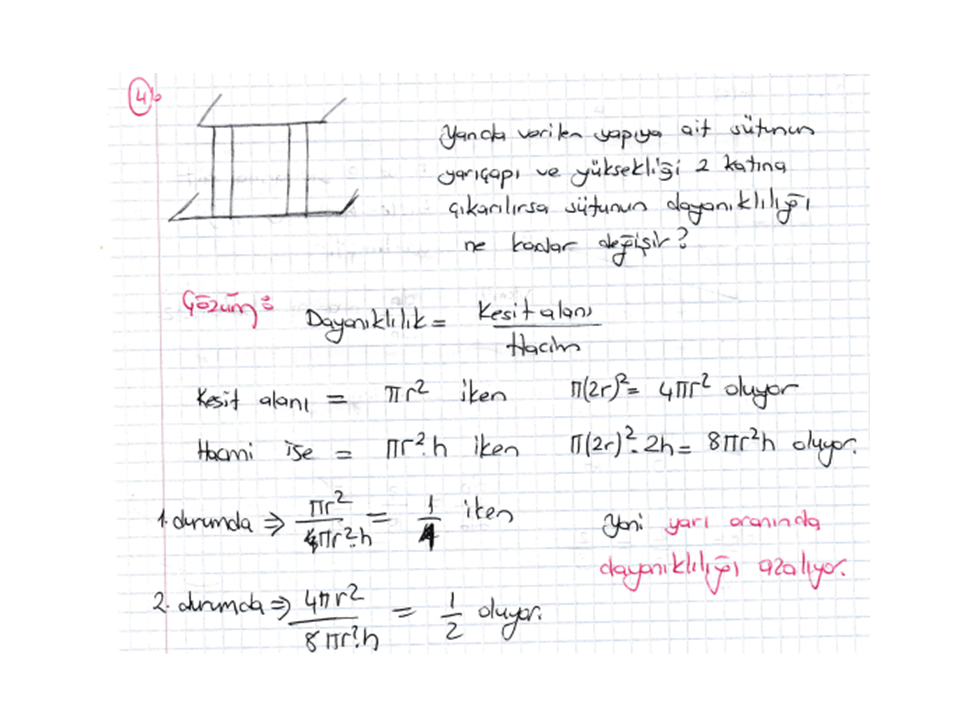 4.
Yanda verilen yapıya ait sütunun
yarıçapı ve yüksekliği 2 katına
çıkarılırsa sütunun dayanıklılığı
ne kadar değişir?
Çözüm:
Dayanıklılık = Kesit alanı / Hacim
Kesit alanı = πr² iken π(2r)² = 4πr² oluyor
Hacmi ise = πr².h iken π(2r)².2h = 8πr²h oluyor.
1. durumda ⇒ πr² / πr².h = 1/1 iken
Yani yarı oranında
dayanıklılığı azalıyor.
2. durumda ⇒ 4πr² / 8πr².h = 1/2 oluyor.